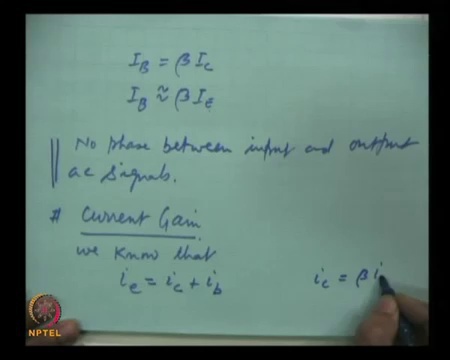 I_B = β I_C
I_B ≈ β I_E
No phase between input and output
ac signals.
# Current Gain
we know that
i_e = i_c + i_b
i_c = β i
NPTEL